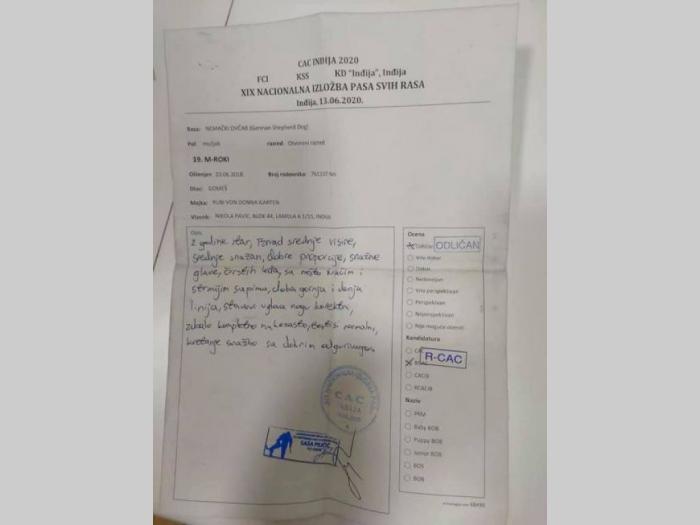 CAC INĐIJA 2020
FCI KSS KD "Inđija", Inđija
XIX NACIONALNA IZLOŽBA PASA SVIH RASA
Inđija, 13.06.2020.
Rasa: NEMAČKI OVČAR (German Shepherd Dog)
Pol: mužjak razred: Otvoreni razred
19. M-ROKI
Oštenjen: 23.06.2018. Broj rodovnika:
Otac: GOMEŠ
Majka: RUBI VON DONNA GARTEN
Vlasnik: NIKOLA PAVIĆ, BLOK 44, LAMELA A 1/15, INĐIJA
Opis:
2 godine star, ponad srednje visine,
srednje snažan, dobre proporcije, snažne
glave, čvrstih leđa, sa nešto kraćim i
strmijim sapima, dobra gornja i donja
linija, stavovi uglova nogu korektni,
zubalo kompletno makazasto, testisi normalni,
kretanje snažno sa dobrim odgurivanjem
CAC
INĐIJA
SAŠA PEJČIĆ
Ocena
Odličan ODLIČAN
Vrlo dobar
Dobar
Nedovoljan
Vrlo perspektivan
Perspektivan
Neperspektivan
Nije moguće oceniti
Kandidatura
CAC
R-CAC
CACIB
RCACIB
Naziv
PRM
Baby BOB
Puppy BOB
Junior BOB
BOS
BOB